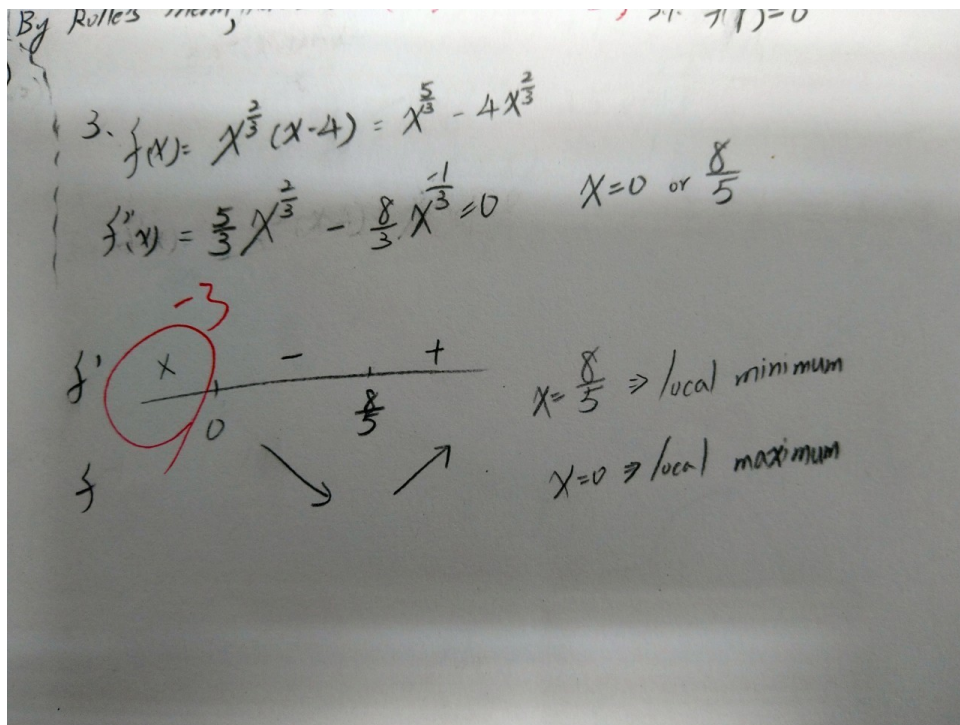 By Rolle's
3. f(x) = x^{2/3} (x-4) = x^{5/3} - 4x^{2/3}
f'(x) = 5/3 x^{2/3} - 8/3 x^{-1/3} = 0   x=0 or 8/5
-3
f' x - +
0 8/5
x = 8/5 ⇒ local minimum
f
x=0 ⇒ local maximum